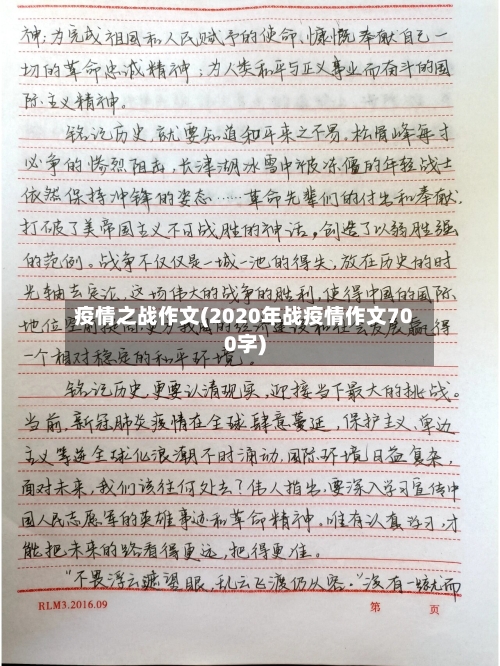 神；为完成祖国和人民赋予的使命、慷慨奉献自己一
切的革命忠诚精神；为人类和平与正义事业而奋斗的国
际主义精神。
铭记历史，就要知道和平来之不易。松骨峰每寸
必争的惨烈阻击，长津湖冰雪中被冻僵的年轻战士
依然保持冲锋的姿态……革命先辈们的付出和奉献，
打破了美帝国主义不可战胜的神话，创造了以弱胜强
的范例。战争不仅仅是一城一池的得失，放在历史的时
光轴去言论，这场伟大的战争的胜利，使得中国的国际
疫情之战作文(2020年战疫情作文70
0字)
地位
赢得
一个相对稳定的和平环境。
铭记历史，更要认清现实，迎接当下最大的挑战。
当前，新冠肺炎疫情在全球肆意蔓延，保护主义、单边
主义等逆全球化浪潮不时涌动，国际环境日益复杂，
面对未来，我们该往何处去？伟人指出，要深入学习宣传中
国人民志愿军的英雄事迹和革命精神。唯有认真学习，才
能把未来的路看得更远，把得更准。
“不畏浮云遮望眼，乱云飞渡仍从容。”没有一蹴而
RLM3.2016.09 第 页